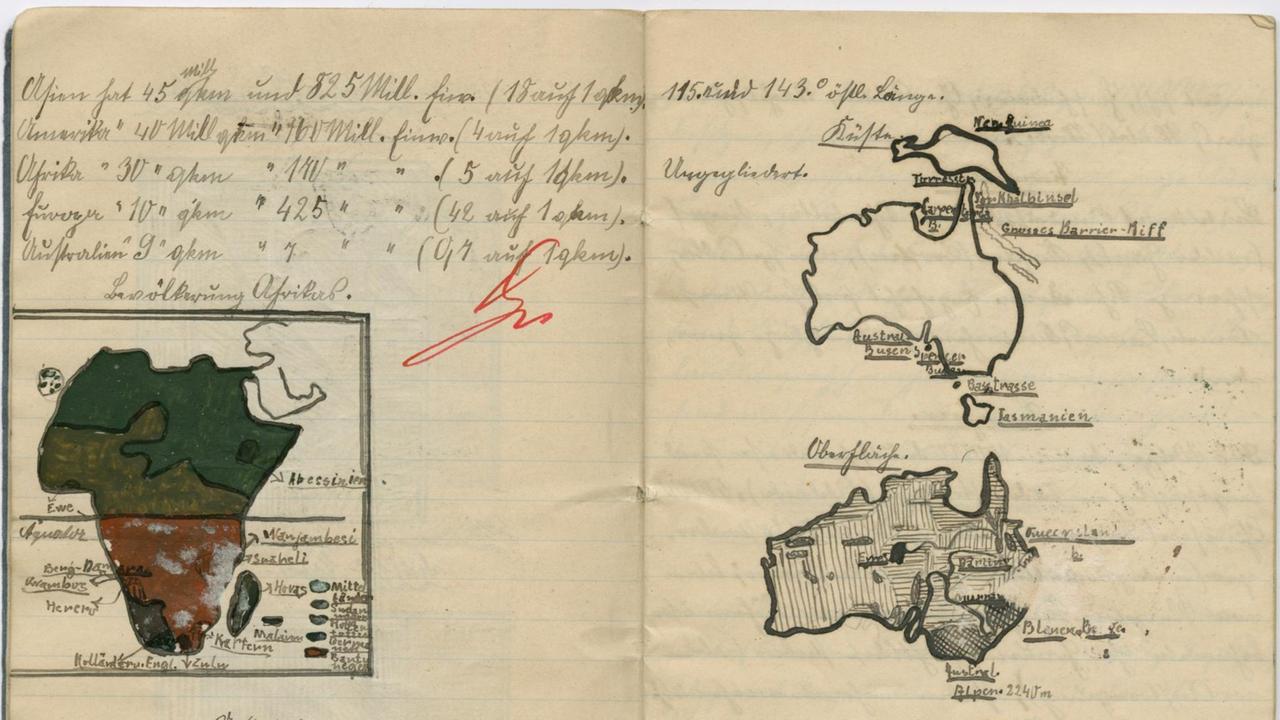 Mill
Asien hat 45 qkm und 825 Mill. Einw. (18 auf 1 qkm).
Amerika " 40 Mill qkm " 160 Mill. Einw. (4 auf 1qkm).
Afrika " 30 " qkm " 140 " " . (5 auf 1qkm).
Europa " 10 " qkm " 425 " " (42 auf 1 qkm).
Australien " 9 " qkm " 7 " " (0,7 auf 1qkm).
Bevölkerung Afrikas.
Abessinien
Ewe
Äquator
Wanjambesi
Suaheli
Berg-Damara
Owamboz
Herero
Hovas
Mittel
länder
Sudan
neger
Hotten
totten
Germa
nen
Bantu
neger
Malaien
Kaffern
Holländer u. Engl.
Zulu
115. und 143.° östl. Länge.
Küste.
Neu-Guinea
Ungegliedert.
Torresstr.
York Halbinsel
Carpentaria
B.
Grosses Barrier-Riff
Austral
Busen
Spencer
Busen
Basstrasse
Tasmanien
Oberfläche.
Queensland
b.
Darling
Murray
Blauen Berge.
Austral.
Alpen. 2240m